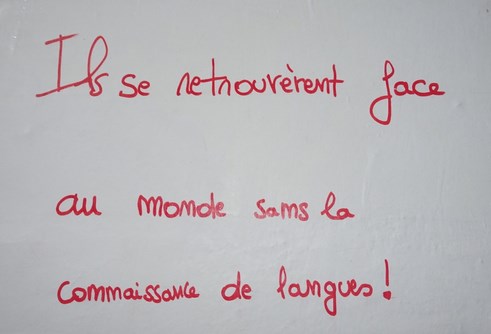 Ils se retrouvèrent face
au monde sans la
connaissance de langues!